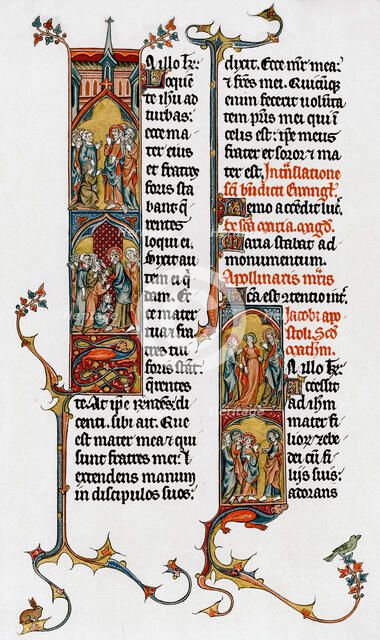 n illo tr̄.
Loquen
te ihū ad
turbas:
ecce ma
ter eius
et fratres
foris sta
bant q̄
rentes
loqui ei.
Dixit au
tem ei q̄
dam. Ec
ce mater
tua ⁊ fra
tres tui
foris stāt.
querentes
te. At ip̄e rn̄dēs. di
centi. sibi ait. Que
est mater mea? ⁊ qui
sunt fratres mei? ⁊
extendens manum
in discipulos suos.
dixit. Ecce mr̄ mea:
⁊ fr̄es mei. Quicūq̄
enim fecerit volūta
tem pr̄is mei qui ī
celis est: ip̄e meus
frater et soror ⁊ ma
ter est. In trn̄slatione
sc̄i bn̄dicti Ewngl̄.
Nemo accēdit luc̄.
De sc̄a maria magd̄.
Maria stabat ad
monumentum.
Apollinaris mr̄is
ca est 9tentio int̄.
Jacobi apo
stoli. Sc̄d
math̄m.
n illo tr̄.
Accessit
ad ihm
mater fi
lior zebe
dei cū fi
lijs suis:
adorans